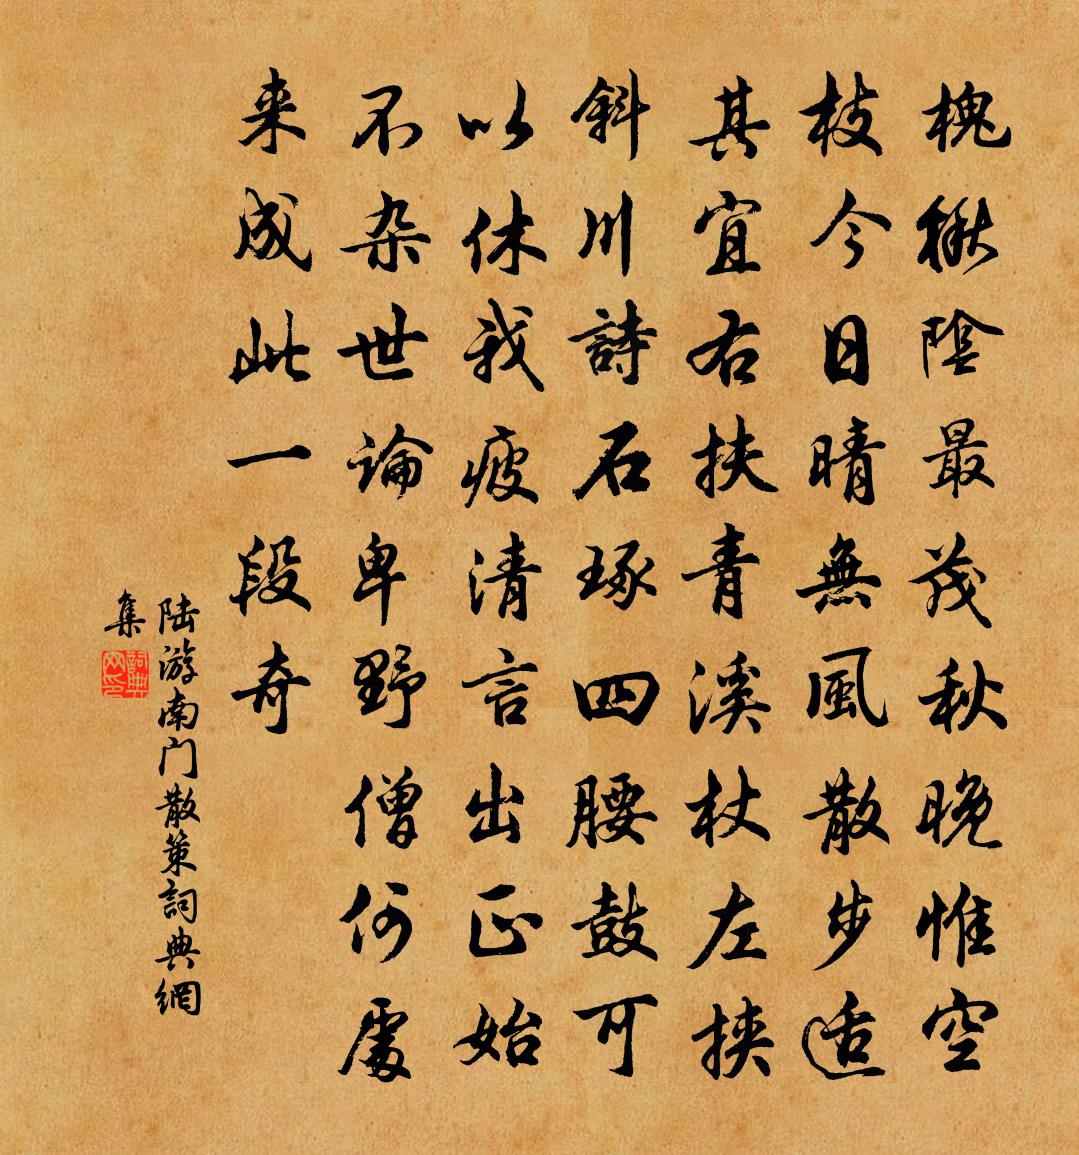 槐楸陰最茂秋晚惟空
枝今日晴無風散步适
其宜右扶青溪杖左挾
斜川詩石琢四腰鼓可
以休我疲清言出正始
不杂世論卑野僧何處
来成此一段奇
陆游南门散策詞典網
集
詞典网印